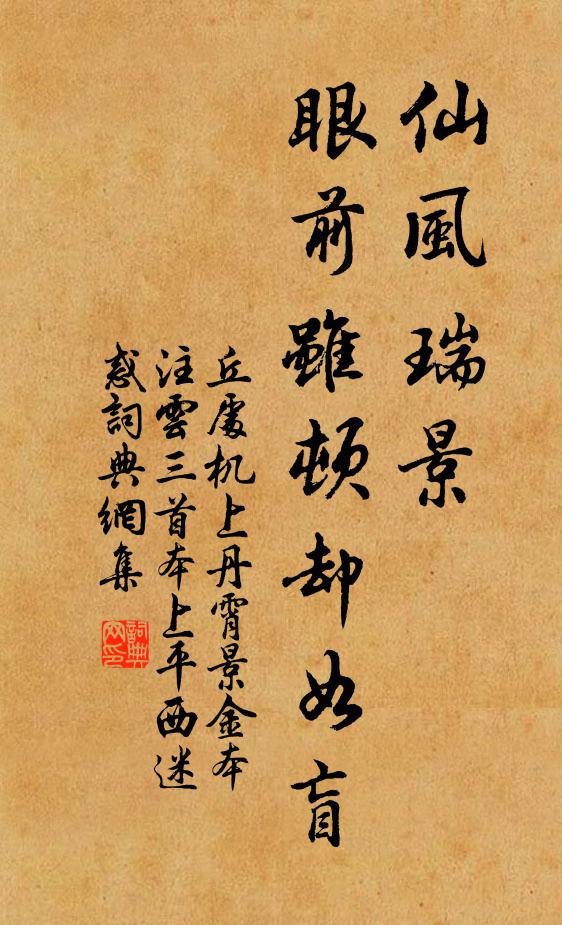 仙風瑞景
眼前雖頓却如盲
丘處机上丹霄景金本
注雲三首本上平西迷
惑詞典網集
詞典
网印